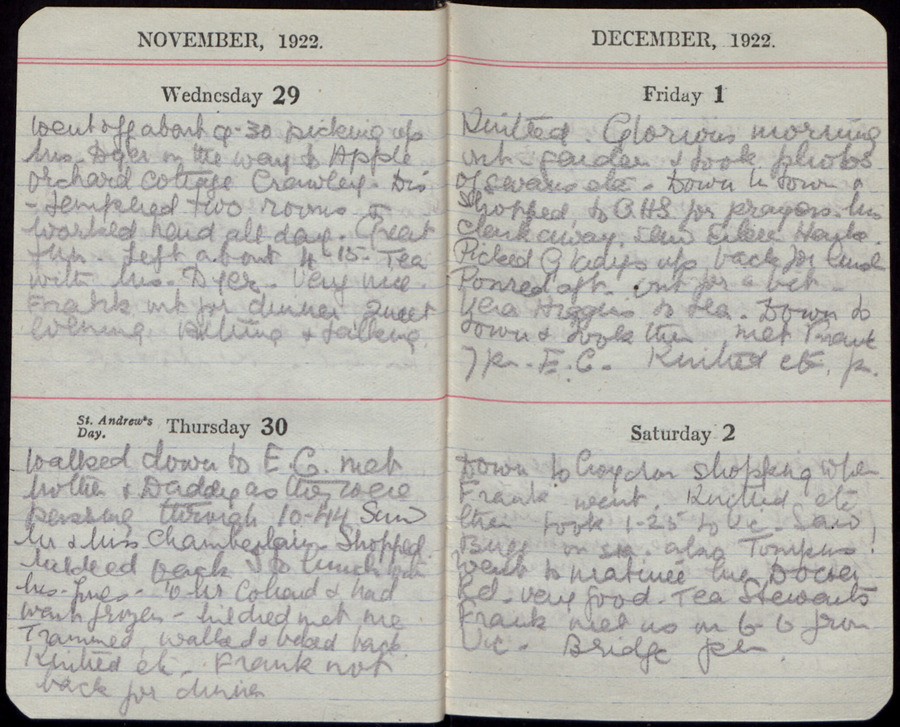 NOVEMBER, 1922.
Wednesday 29
Went off about 9-30 picking up
Mrs. Dyer on the way to Apple
Orchard Cottage Crawley. Dis
-tempered two rooms &
worked hard all day. Great
fun. Left about 4-15. Tea
with Mrs. Dyer. Very nice.
Frank out for dinner Quiet
evening. Knitting & talking.
St. Andrew's Day. Thursday 30
Walked down to E.C. met
Mother & Daddy as they were
passing through 10-44 Saw
Mr & Mrs Chamberlain. Shopped.
Mildred back to lunch
Mrs. Jones - To Mr Collard & had
frozen - Mildred met me
Trammed, walked & bused back.
Knitted etc. Frank not
back for dinner
DECEMBER, 1922.
Friday 1
Knitted. Glorious morning
out garden & took photos
of etc. Down to town &
Shopped to C.H.S. for prayers. Mr
Clark away. Saw Eileen
Picked Gladys up back for lunch
Poured aft. out for a bit.
Vera Higgins to tea. Down to
town & took them met Frank
7 pm. E.C. Knitted etc.
Saturday 2
Down to Croydon shopping when
Frank went. Knitted etc
then took 1-25 to Vic. Saw
on stn. also Tompkins!
Went to matinée
very good. Tea Stewarts
Frank met us on 6-6 from
Vic. Bridge